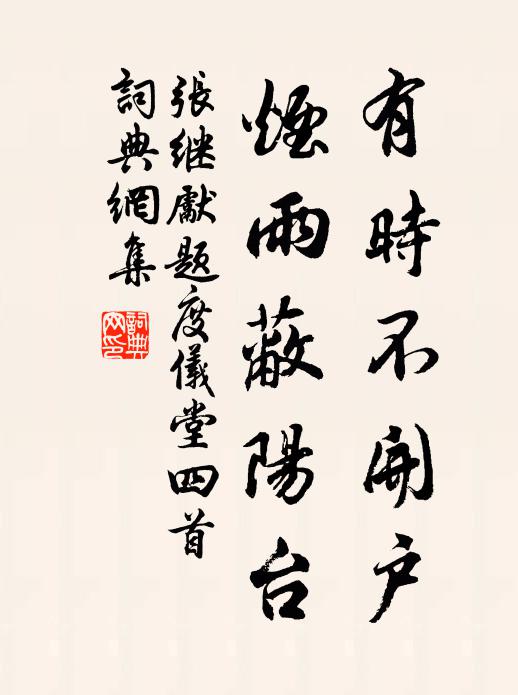 有時不開户
煙雨蔽陽台
張继獻题度儀堂四首
詞典網集
詞典网印